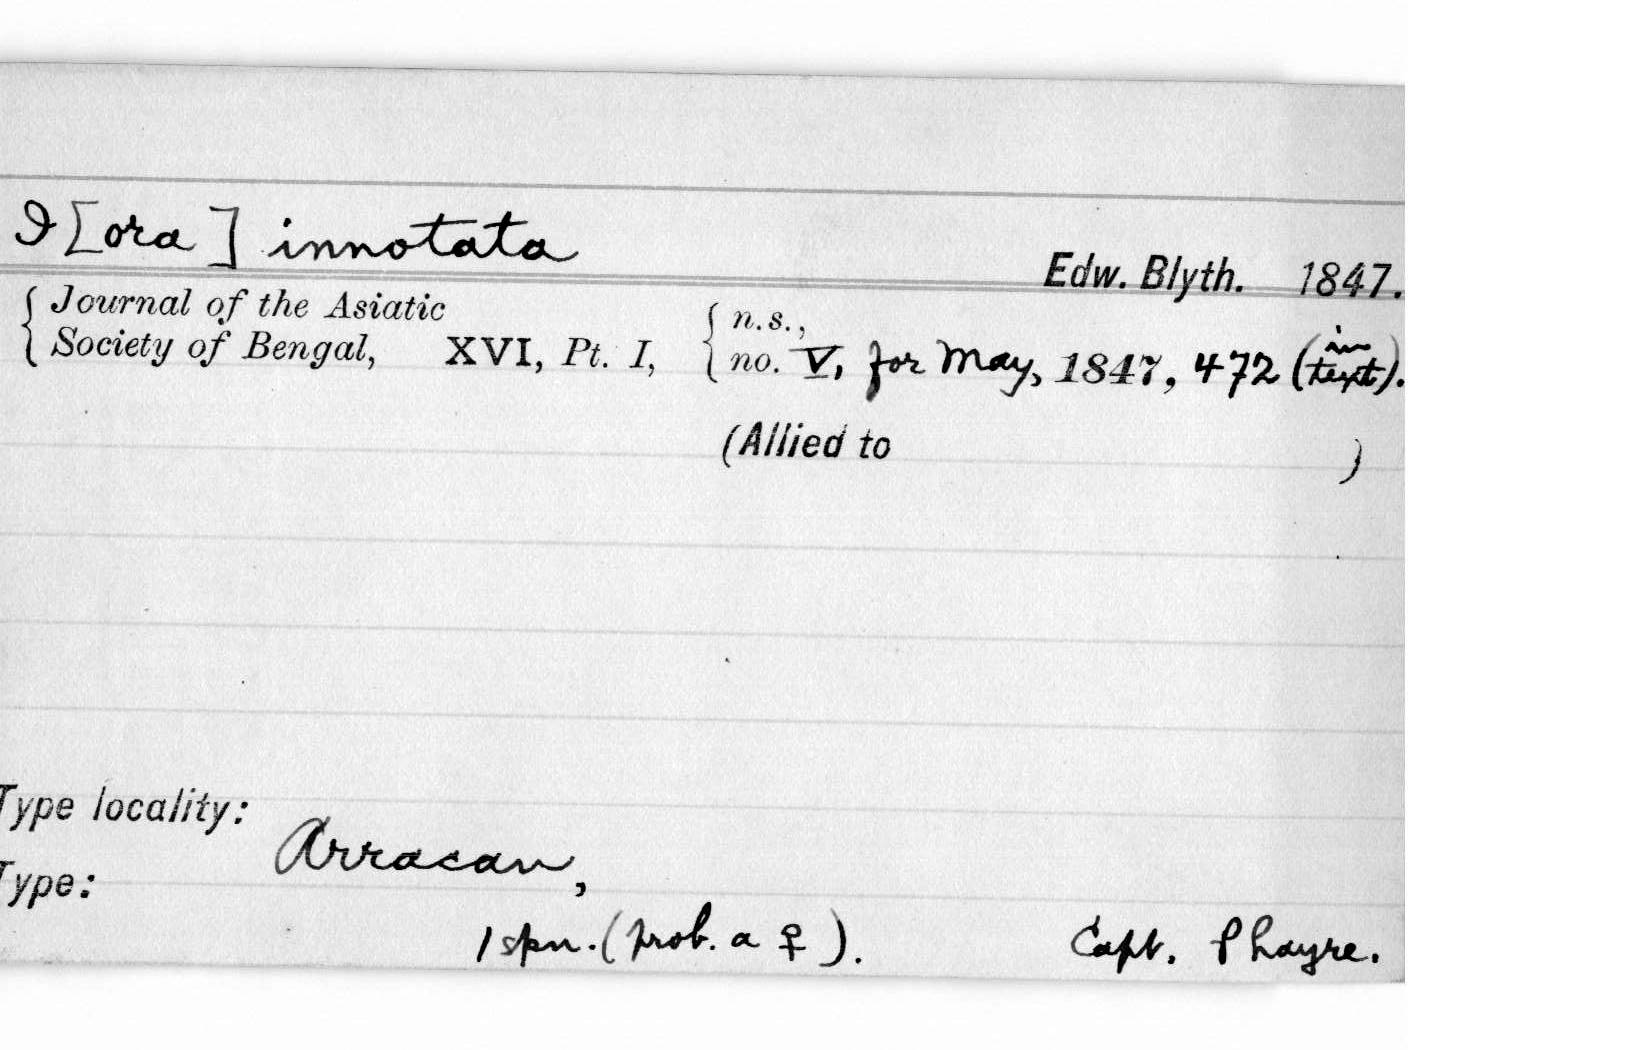 I[ora] innotata
Edw. Blyth. 1847.
{ Journal of the Asiatic
Society of Bengal, XVI, Pt. I, { n.s.,
no. V, for May, 1847, 472 (in text).
(Allied to )
Type locality:
Arracan,
Type:
1 spn. (prob. a ♀).
Capt. Phayre.